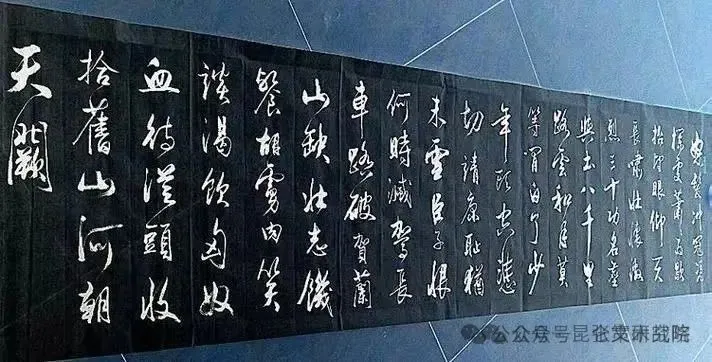 怒髮沖冠憑
處 雨歇
抬望眼仰天
長嘯壯懷激
烈三十功名塵
與土八千里
路雲和月莫
等閒白了少
年頭空悲
切靖康恥猶
未雪臣子恨
何時滅駕長
車路破賀蘭
山缺壯志饑
餐胡虜肉笑
談渴飲匈奴
血待從頭收
拾舊山河朝
天闕
公众号